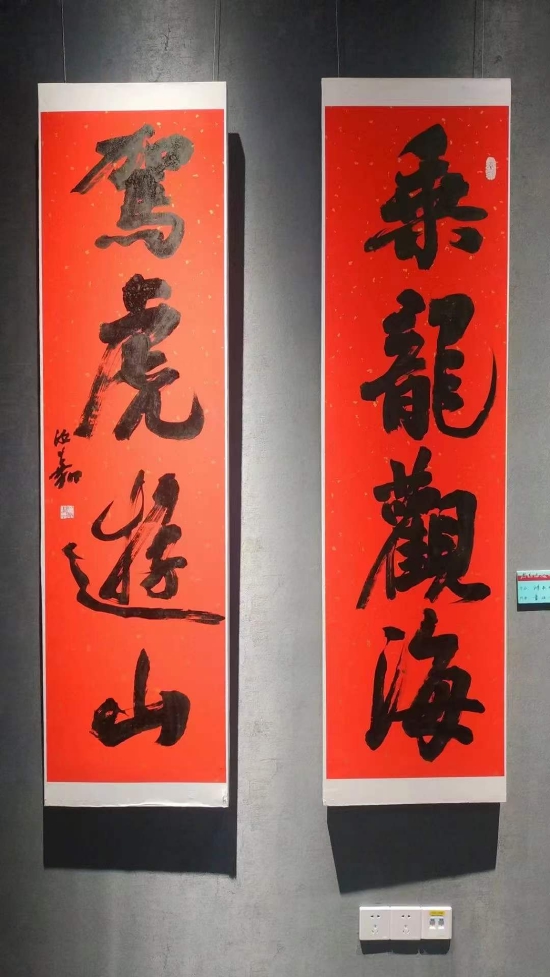 乘龍觀海
駕虎遊山